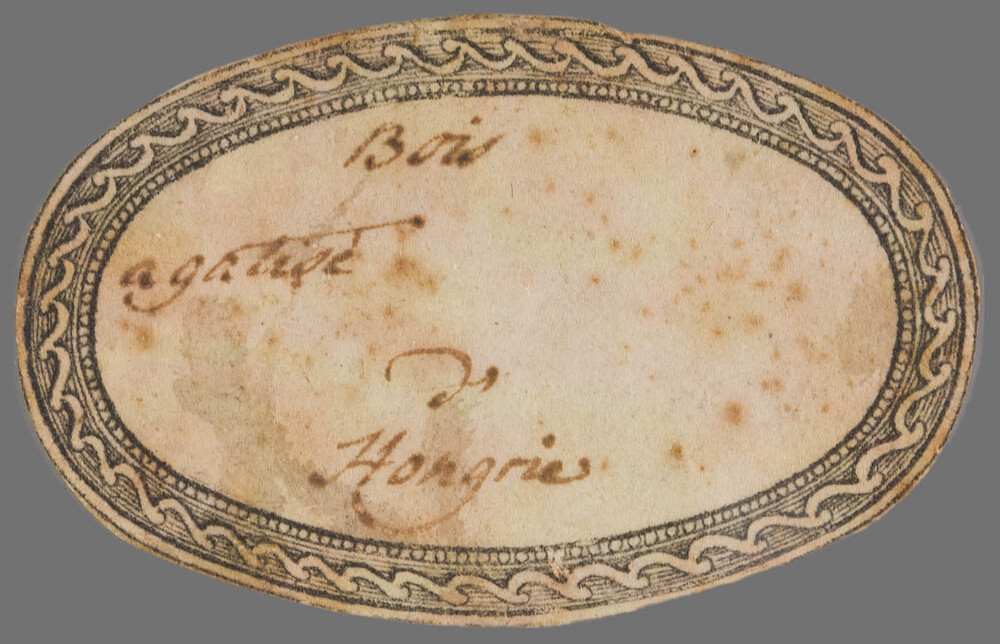 Bois
agatisé
d'
Hongrie